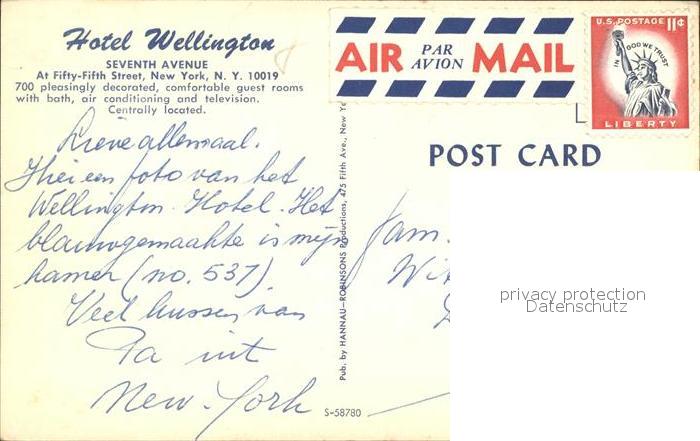 Hotel Wellington
SEVENTH AVENUE
At Fifty-Fifth Street, New York, N. Y. 10019
700 pleasingly decorated, comfortable guest rooms
with bath, air conditioning and television.
Centrally located.
AIR PAR AVION MAIL
U.S. POSTAGE 11¢
IN GOD WE TRUST
LIBERTY
POST CARD
Lieve allemaal.
Hier een foto van het
Wellington Hotel. Het
blauwgemaakte is mijn
kamer (no. 537).
Veel kussen van
Pa uit
New-York
Pub. by HANNAU-ROBINSONS Productions, 475 Fifth Ave., New Yo
S-58780
Fam.
privacy protection
Datenschutz